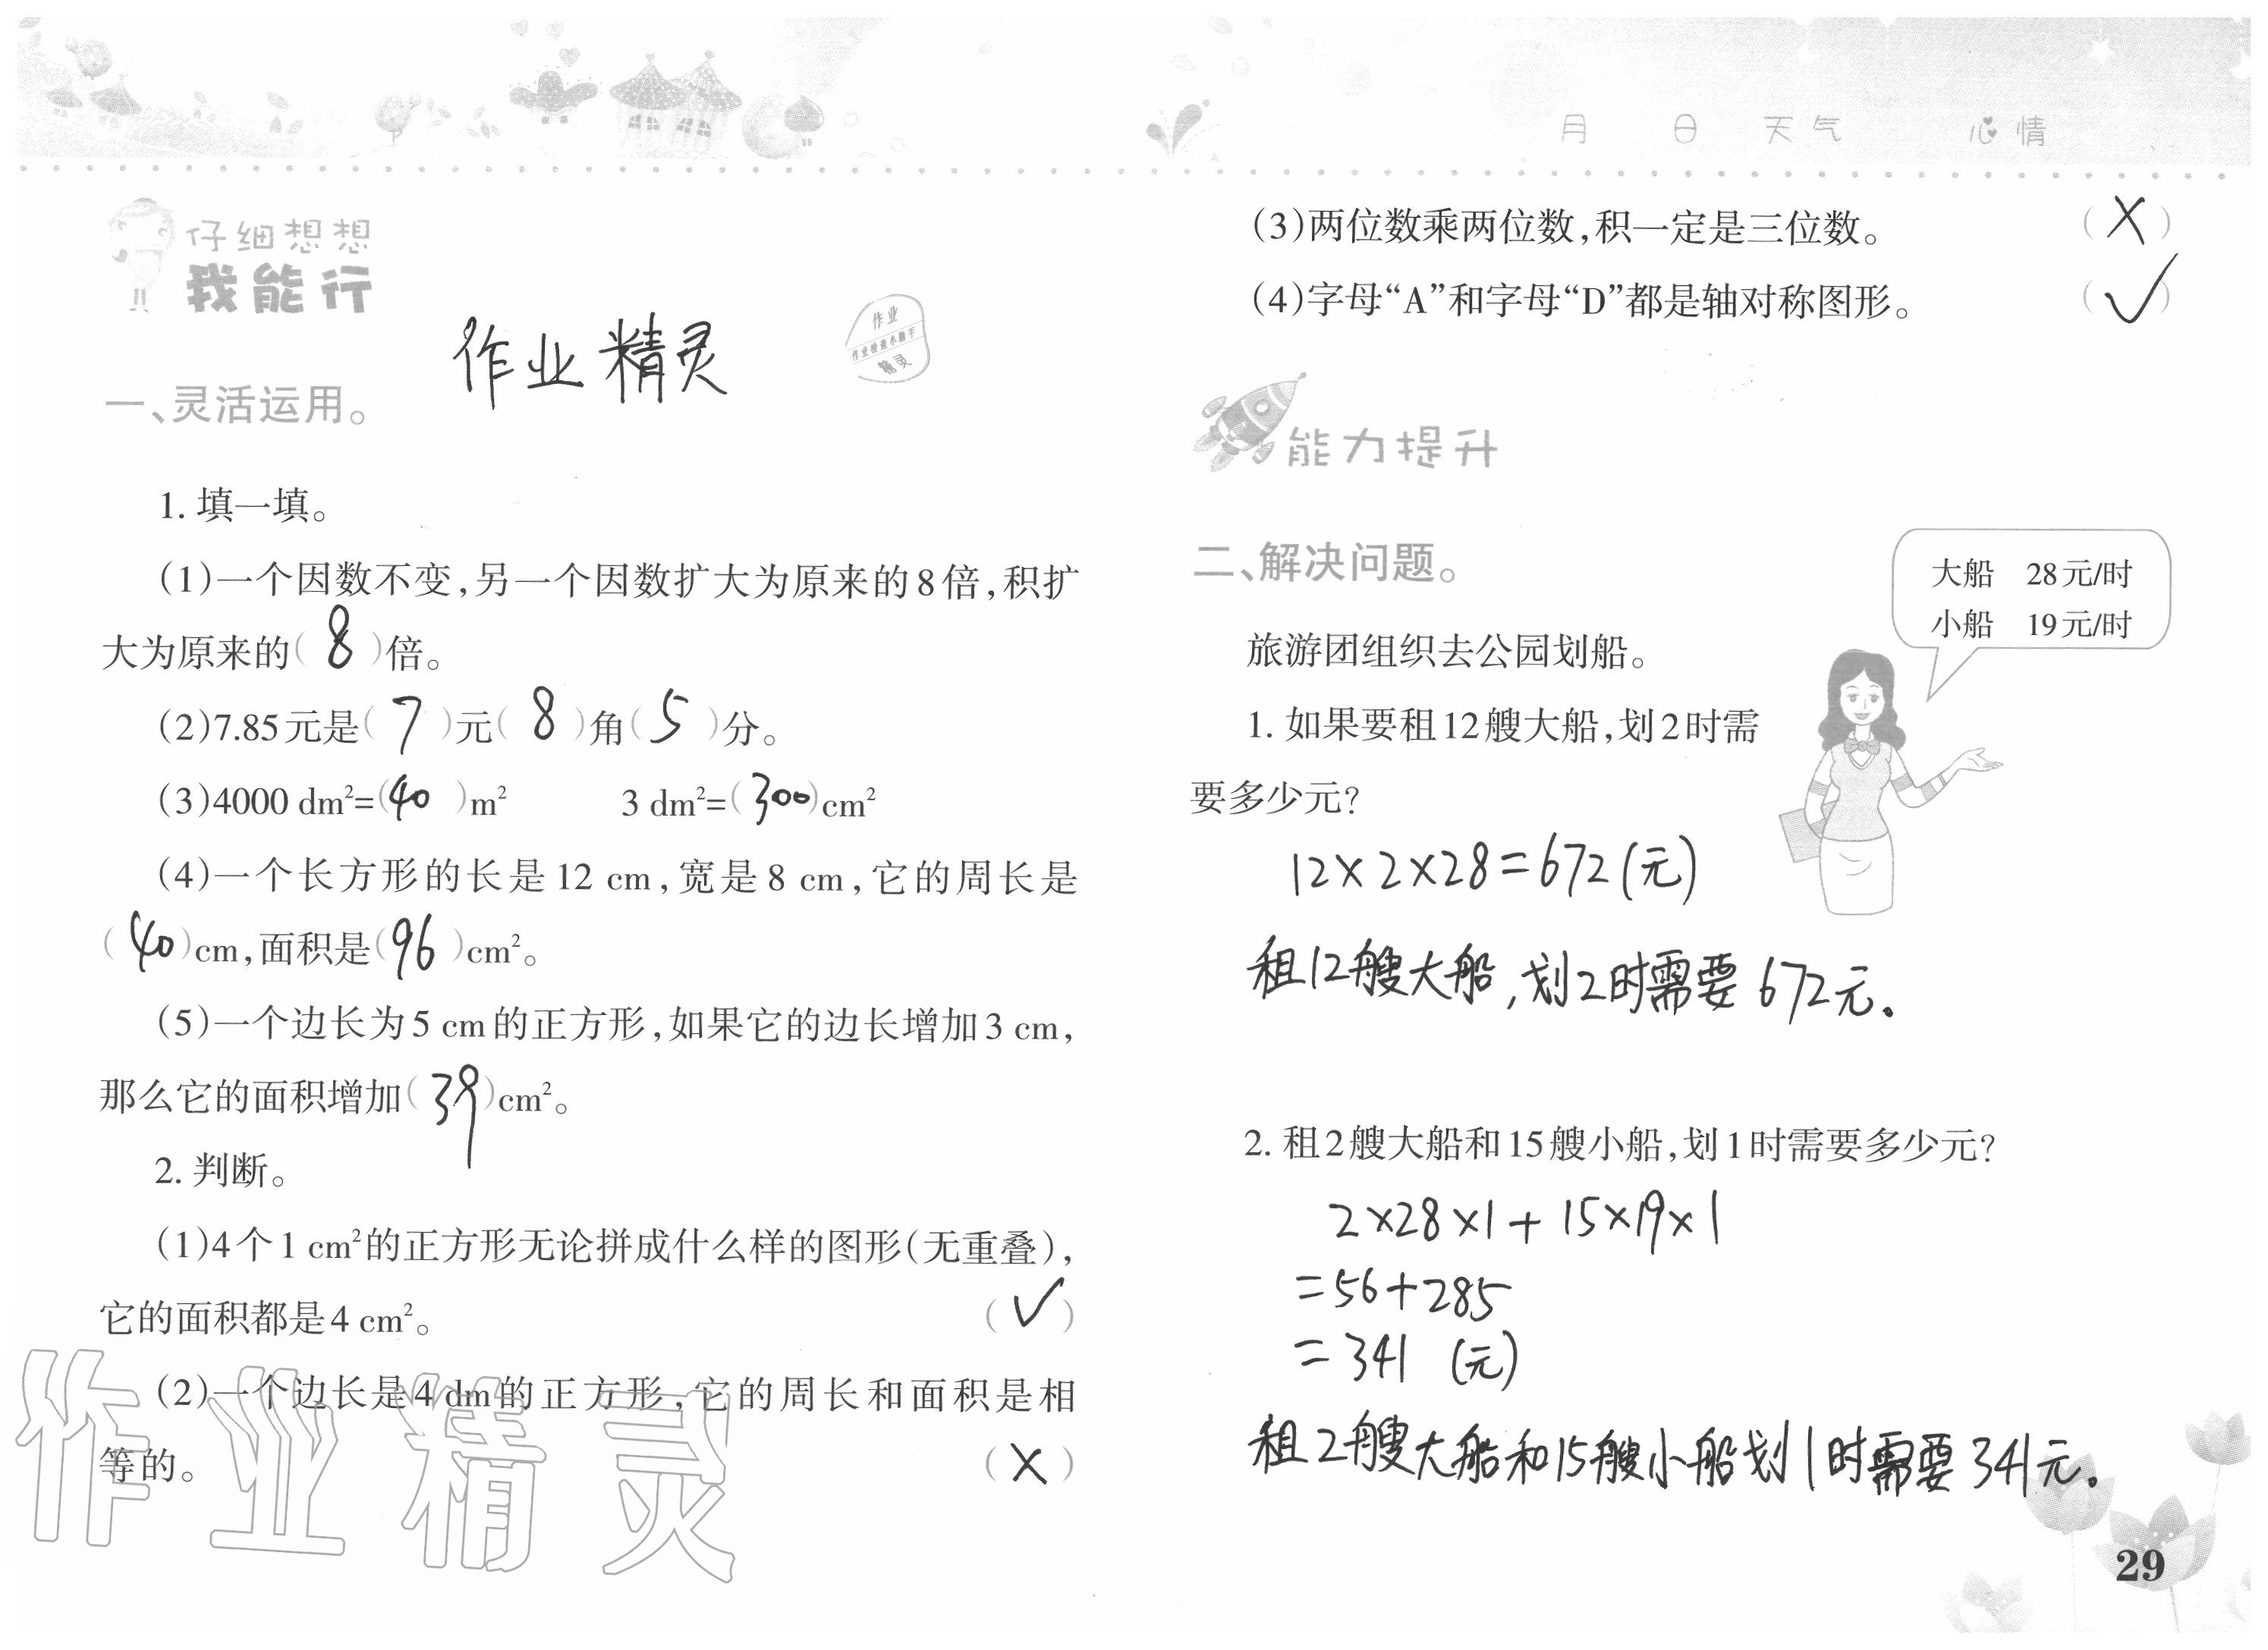 月 日 天气 心情
仔细想想
我能行
作业精灵
作业
作业精灵小助手
精灵
一、灵活运用。
1. 填一填。
(1)一个因数不变,另一个因数扩大为原来的8倍,积扩
大为原来的( 8 )倍。
(2)7.85元是( 7 )元( 8 )角( 5 )分。
(3)4000 dm²=(40 )m² 3 dm²=(300)cm²
(4)一个长方形的长是12 cm,宽是8 cm,它的周长是
(40)cm,面积是(96 )cm²。
(5)一个边长为5 cm的正方形,如果它的边长增加3 cm,
那么它的面积增加(39)cm²。
2. 判断。
(1)4个1 cm²的正方形无论拼成什么样的图形(无重叠),
它的面积都是4 cm²。 (✓)
(2)一个边长是4 dm的正方形,它的周长和面积是相
等的。 (×)
作业精灵
(3)两位数乘两位数,积一定是三位数。 (×)
(4)字母“A”和字母“D”都是轴对称图形。 (✓)
能力提升
二、解决问题。
大船 28元/时
小船 19元/时
旅游团组织去公园划船。
1. 如果要租12艘大船,划2时需
要多少元?
12×2×28=672(元)
租12艘大船,划2时需要672元.
2. 租2艘大船和15艘小船,划1时需要多少元?
2×28×1+15×19×1
=56+285
=341 (元)
租2艘大船和15艘小船划1时需要341元。
29